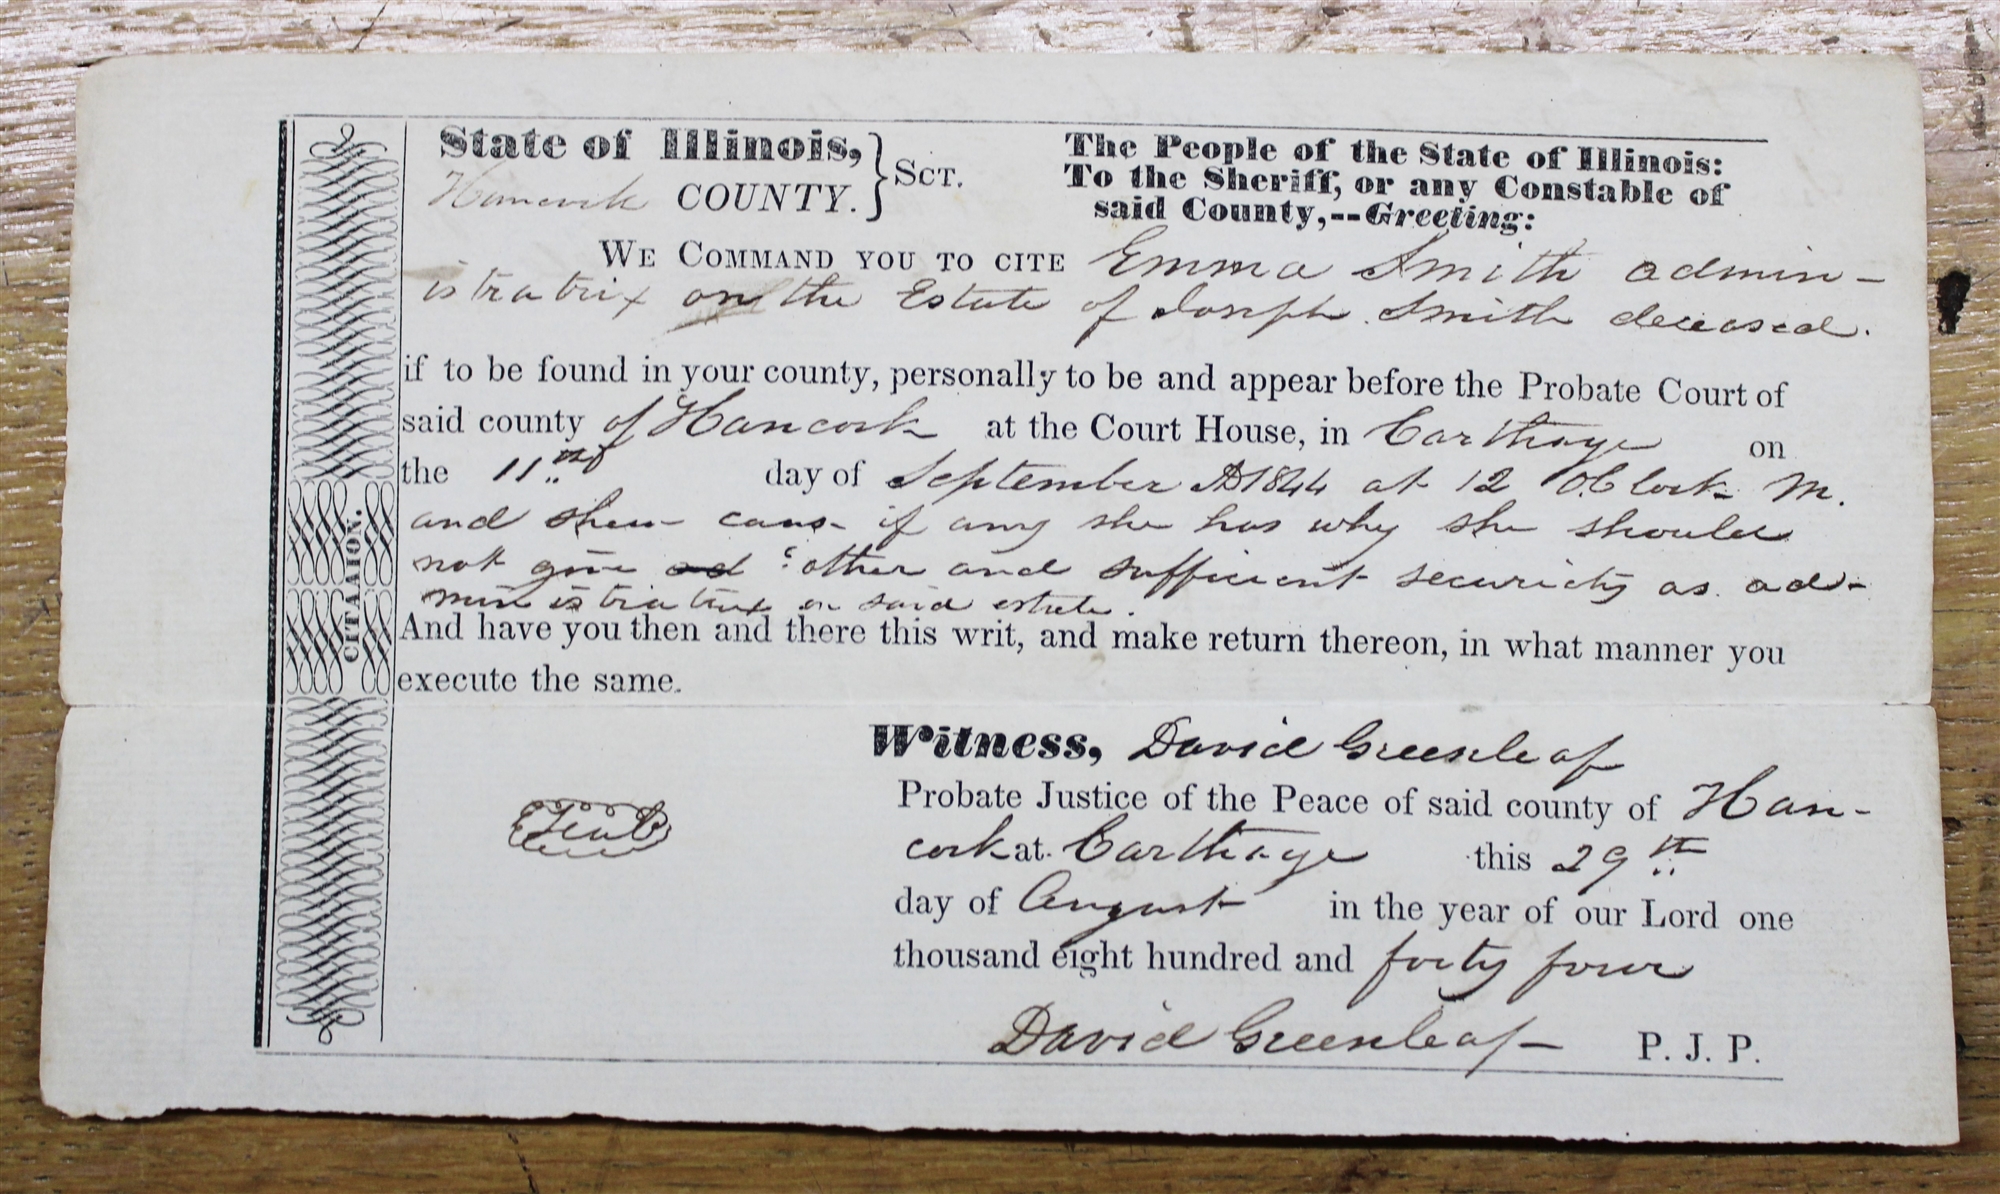 State of Illinois,
Hancock COUNTY. } SCT.
The People of the State of Illinois:
To the Sheriff, or any Constable of
said County,--Greeting:
WE COMMAND YOU TO CITE Emma Smith admin-
istratrix on the Estate of Joseph Smith deceased.
if to be found in your county, personally to be and appear before the Probate Court of
said county of Hancock at the Court House, in Carthage on
the 11th day of September AD 1844 at 12 O.Clock M.
and shew cause if any she has why she should
not give other and sufficient security as ad-
ministratrix on said estate.
And have you then and there this writ, and make return thereon, in what manner you
execute the same.
CITAAION.
Witness, David Greenleaf
Probate Justice of the Peace of said county of Han-
cock at Carthage this 29th
day of August in the year of our Lord one
thousand eight hundred and forty four
Seal
David Greenleaf P. J. P.